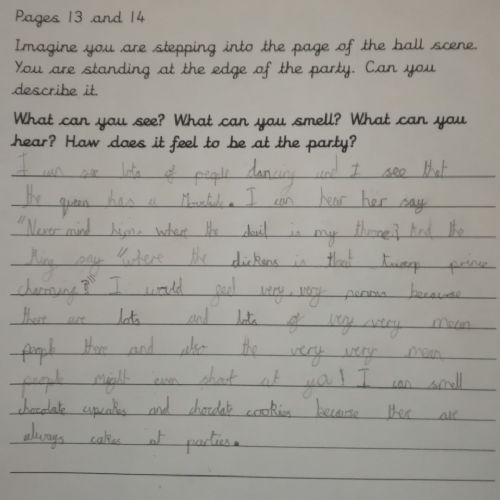 Pages 13 and 14
Imagine you are stepping into the page of the ball scene.
You are standing at the edge of the party. Can you
describe it.
What can you see? What can you smell? What can you
hear? How does it feel to be at the party?
I can see lots of people dancing and I see that
the queen has a . I can hear her say
"Never mind him, where the devil is my throne? And the
king say "where the dickens is that prince
charming?" I would feel very, very nervous because
there are lots and lots of very very mean
people there and also the very very mean
people might even shout at ya! I can smell
chocolate cupcakes and chocolate cookies because there are
always cakes at parties.